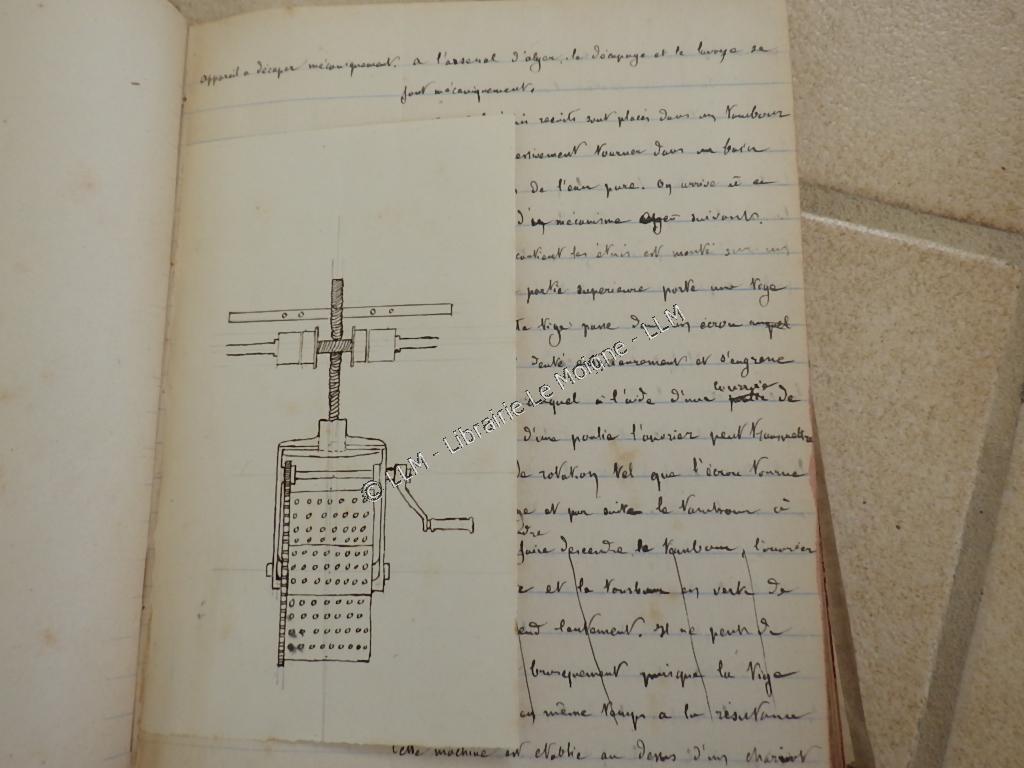 Appareil a décaper mécaniquement. A l'arsenal d'alger, le décapage et le lavage se
font mécaniquement.
recuits sont placés dans un tambour
tourner dans un bain
de l'eau pure. On arrive à ce
d'un mécanisme suivant.
contient les étuis est monté sur un
partie superieure porte une tige
tige passe dans un écrou
denté et s'engrene
auquel a l'aide d'une courroie de
d'une poulie l'ouvrier peut transmettre
de rotation tel que l'écrou tourne
et par suite le tambour à
faire descendre le tambour, l'ouvrier
et le tambour en vertu de
lentement. Il ne peut de
brusquement puisque la tige
en même temps a la résistance
Cette machine est etablie au dessus d'un chariot
© LLM - Librairie Le Moigne - LLM